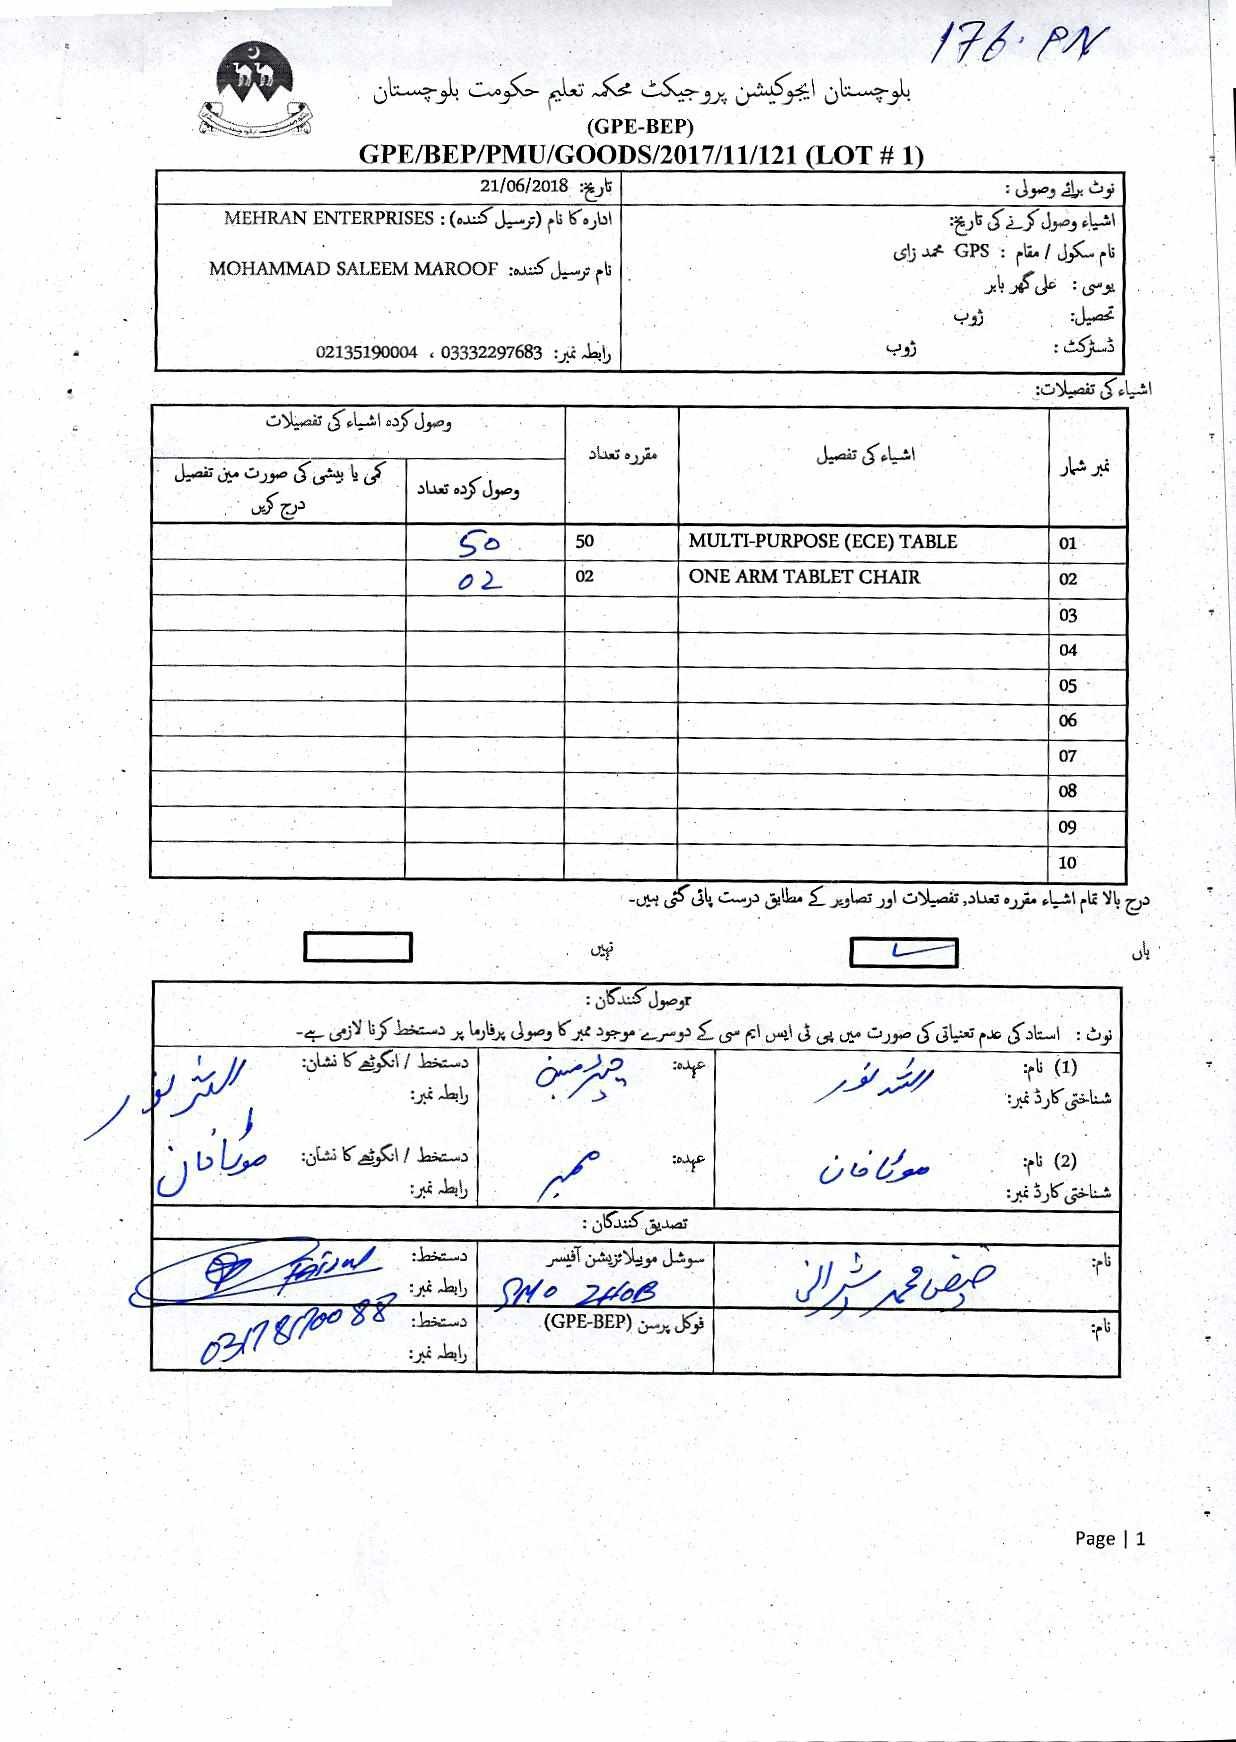 176. PN
بلوچستان ایجوکیشن پروجیکٹ محکمہ تعلیم حکومت بلوچستان
(GPE-BEP)
GPE/BEP/PMU/GOODS/2017/11/121 (LOT # 1)
نوٹ برائے وصولی :
تاریخ: 21/06/2018
اشیاء وصول کرنے کی تاریخ:
ادارہ کا نام (ترسیل کنندہ) : MEHRAN ENTERPRISES
نام سکول / مقام : GPS محمد زای
نام ترسیل کنندہ: MOHAMMAD SALEEM MAROOF
یوسی : علی گھر بابر
تحصیل: ژوب
ڈسٹرکٹ : ژوب
رابطہ نمبر: 03332297683 ، 02135190004
اشیاء کی تفصیلات:
نمبر شمار اشیاء کی تفصیل مقررہ تعداد وصول کردہ اشیاء کی تفصیلات
وصول کردہ تعداد کمی یا بیشی کی صورت مین تفصیل درج کریں
01 MULTI-PURPOSE (ECE) TABLE 50 50
02 ONE ARM TABLET CHAIR 02 02
03
04
05
06
07
08
09
10
درج بالا تمام اشیاء مقررہ تعداد, تفصیلات اور تصاویر کے مطابق درست پائی گئی ہیں۔
ہاں نہیں
وصول کنندگان :
نوٹ : استاد کی عدم تعنیاتی کی صورت میں پی ٹی ایس ایم سی کے دوسرے موجود ممبر کا وصولی پرفارما پر دستخط کرنا لازمی ہے۔
(1) نام: عہدہ: چیئرمین دستخط / انگوٹھے کا نشان:
شناختی کارڈ نمبر: رابطہ نمبر:
(2) نام: عہدہ: ممبر دستخط / انگوٹھے کا نشان:
شناختی کارڈ نمبر: رابطہ نمبر:
تصدیق کنندگان :
نام: سوشل موبیلائزیشن آفیسر دستخط:
SMO ZHOB رابطہ نمبر:
نام: فوکل پرسن (GPE-BEP) دستخط:
رابطہ نمبر:
Page | 1